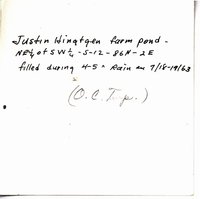 Justin Hingtgen farm pond -
NE¼ of SW¼ - S-12 - 86N - 2E
filled during 4-5" Rain on 7/18-19/63
(O.C. Twp.)